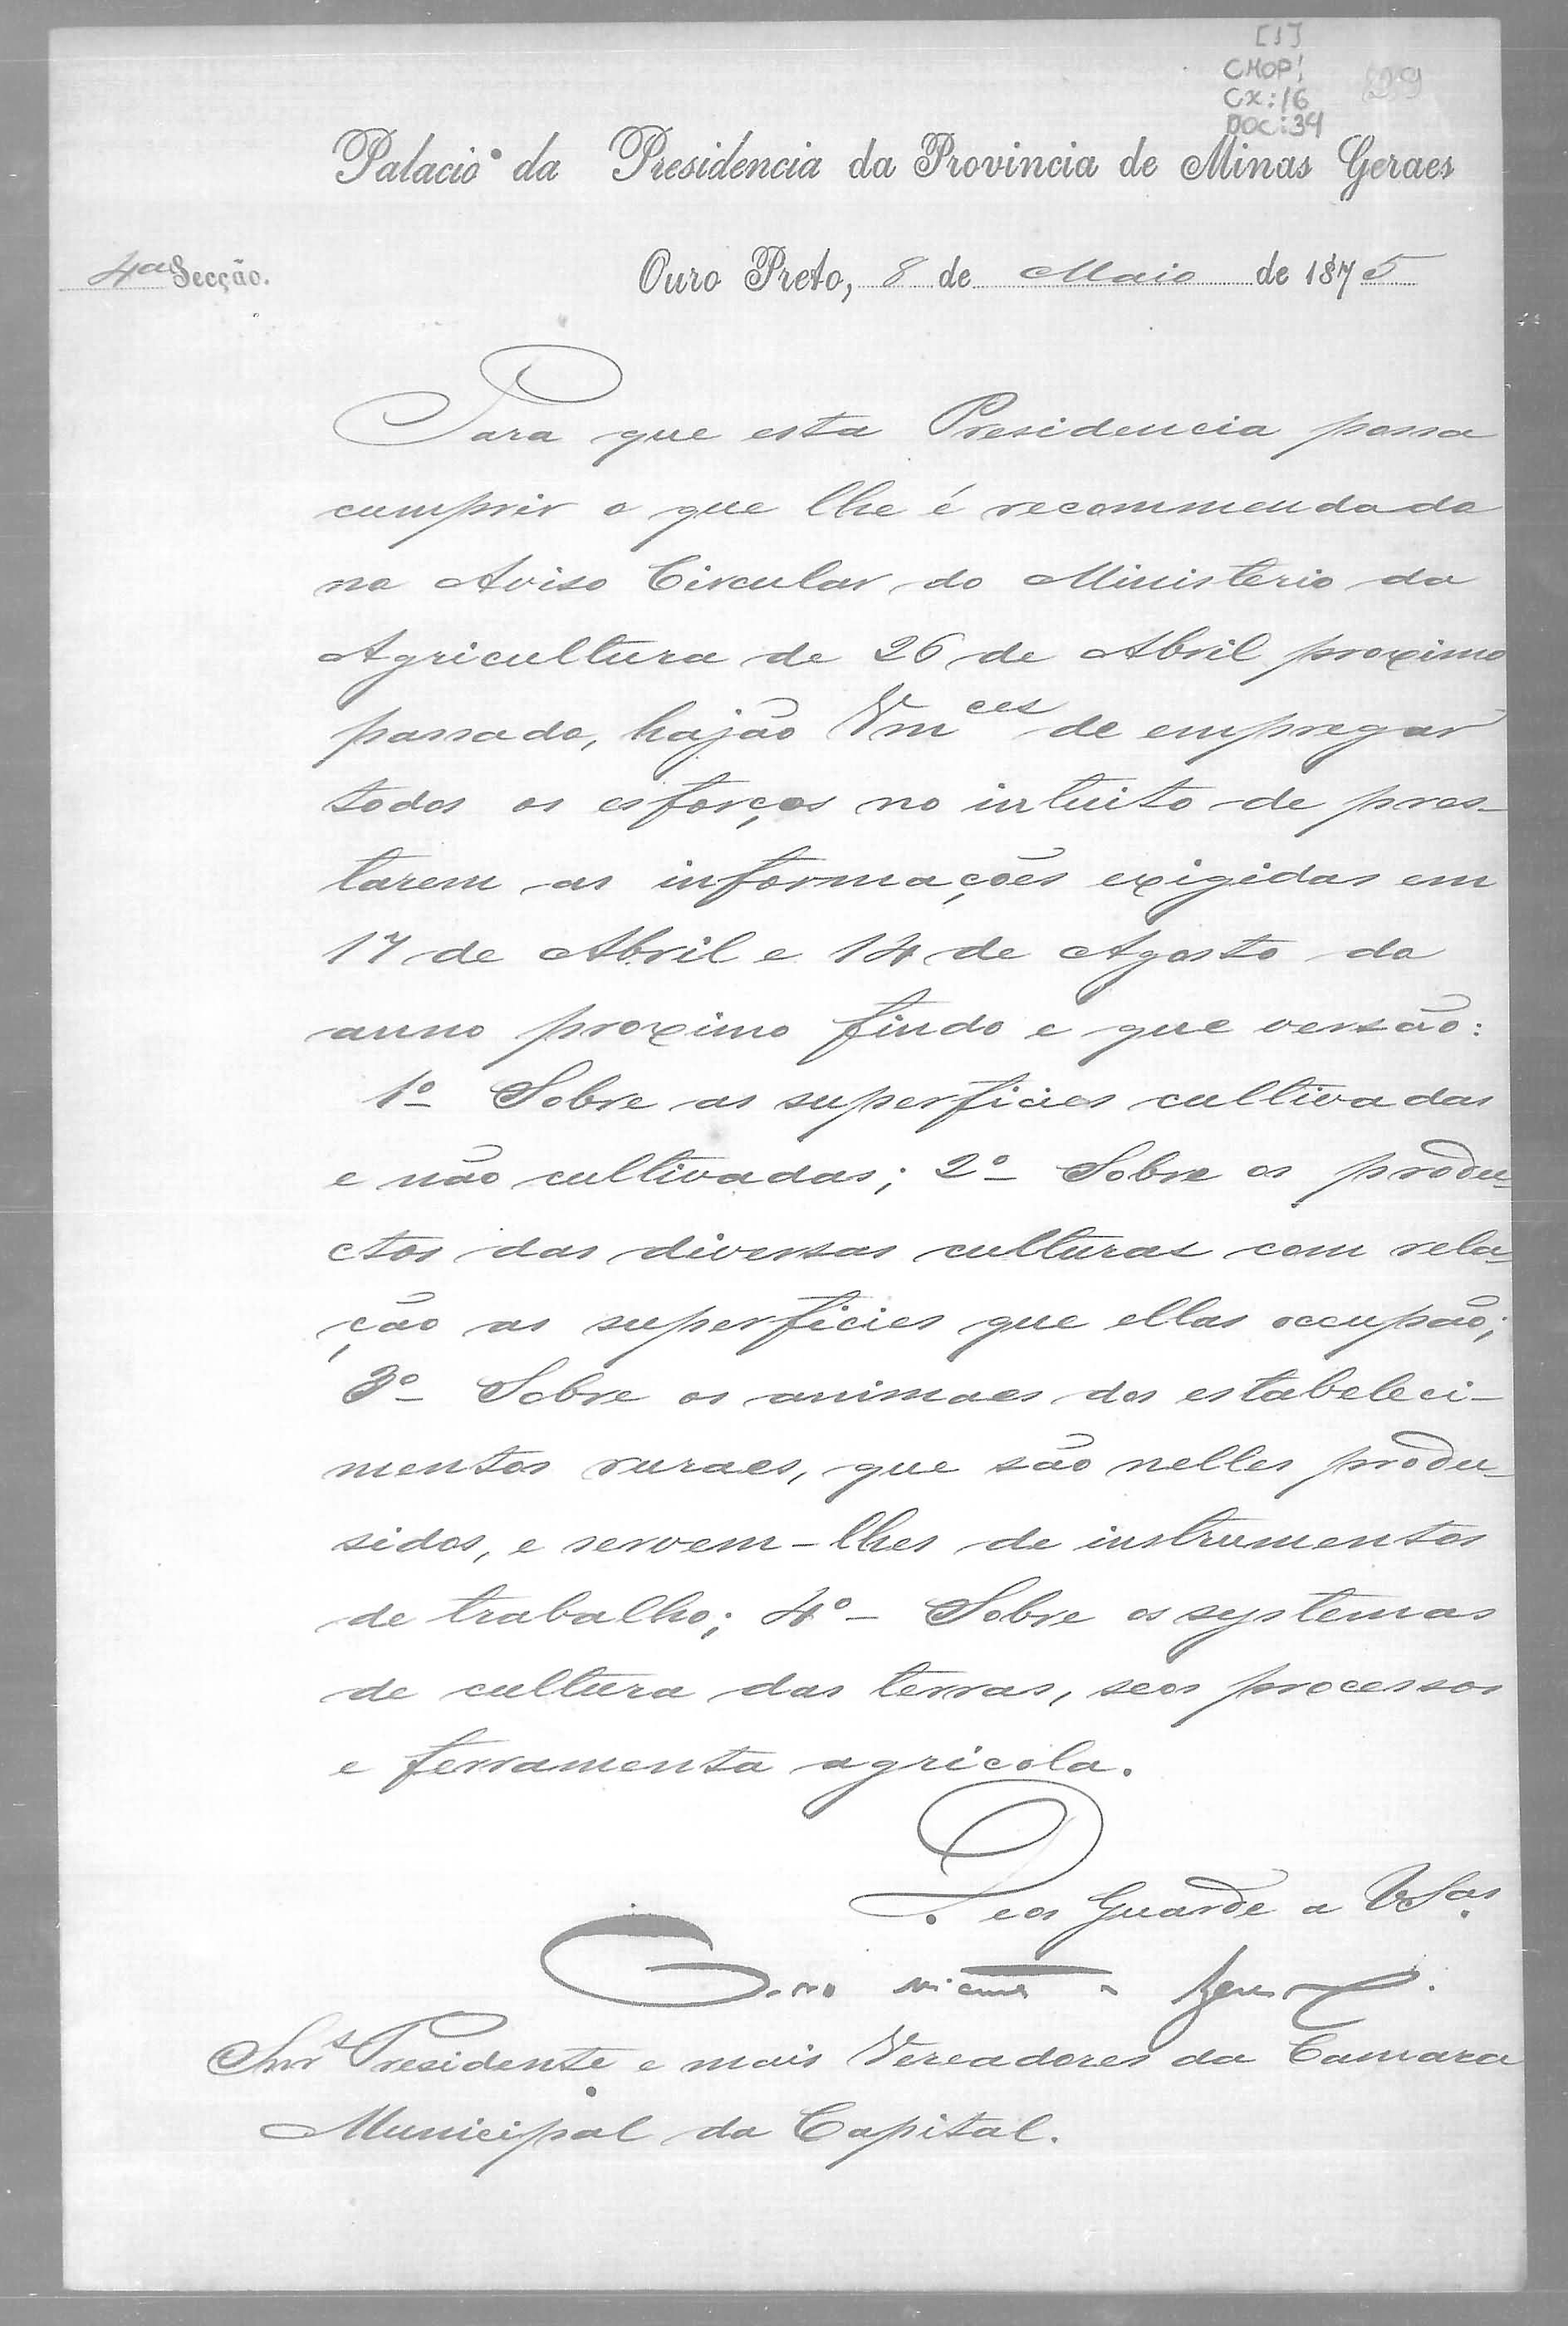 [1]
CMOP!
CX:16
DOC:34
Palacio da Presidencia da Provincia de Minas Geraes
4ª Secção.
Ouro Preto, 8 de Maio de 1875
Para que esta Presidencia possa
cumprir o que lhe é recommendado
no Aviso Circular do Ministerio da
Agricultura de 26 de Abril proximo
passado, hajão Vmces de empregar
todos os esforços no intuito de pres-
tarem as informações exigidas em
17 de Abril e 14 de Agosto do
anno proximo findo e que versão:
1º - Sobre as superficies cultivadas
e não cultivadas; 2º - Sobre os produ-
ctos das diversas culturas com rela-
ção as superficies que ellas occupão;
3º - Sobre os animaes dos estabeleci-
mentos ruraes, que são nelles produ-
sidos, e servem-lhes de instrumentos
de trabalho; 4º - Sobre os systemas
de cultura das terras, seos processos
e ferramenta agricola.
Deos Guarde a VSas.
Snrs Presidente e mais Vereadores da Camara
Municipal da Capital.